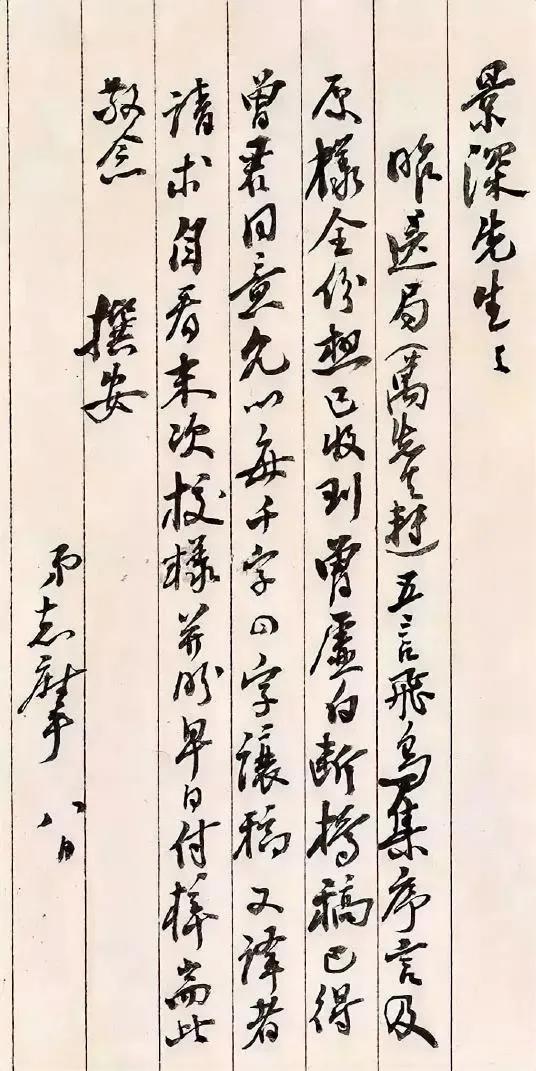 景深先生：
昨送局（萬先生轉）五言飛鳥集序言及
原樣全份想已收到曾虛白斷橋稿已得
曾君同意允以每千字四字讓稿 又譯者
請求自看末次校樣並盼早日付樣耑此
敬念
撰安
弟志摩 八日